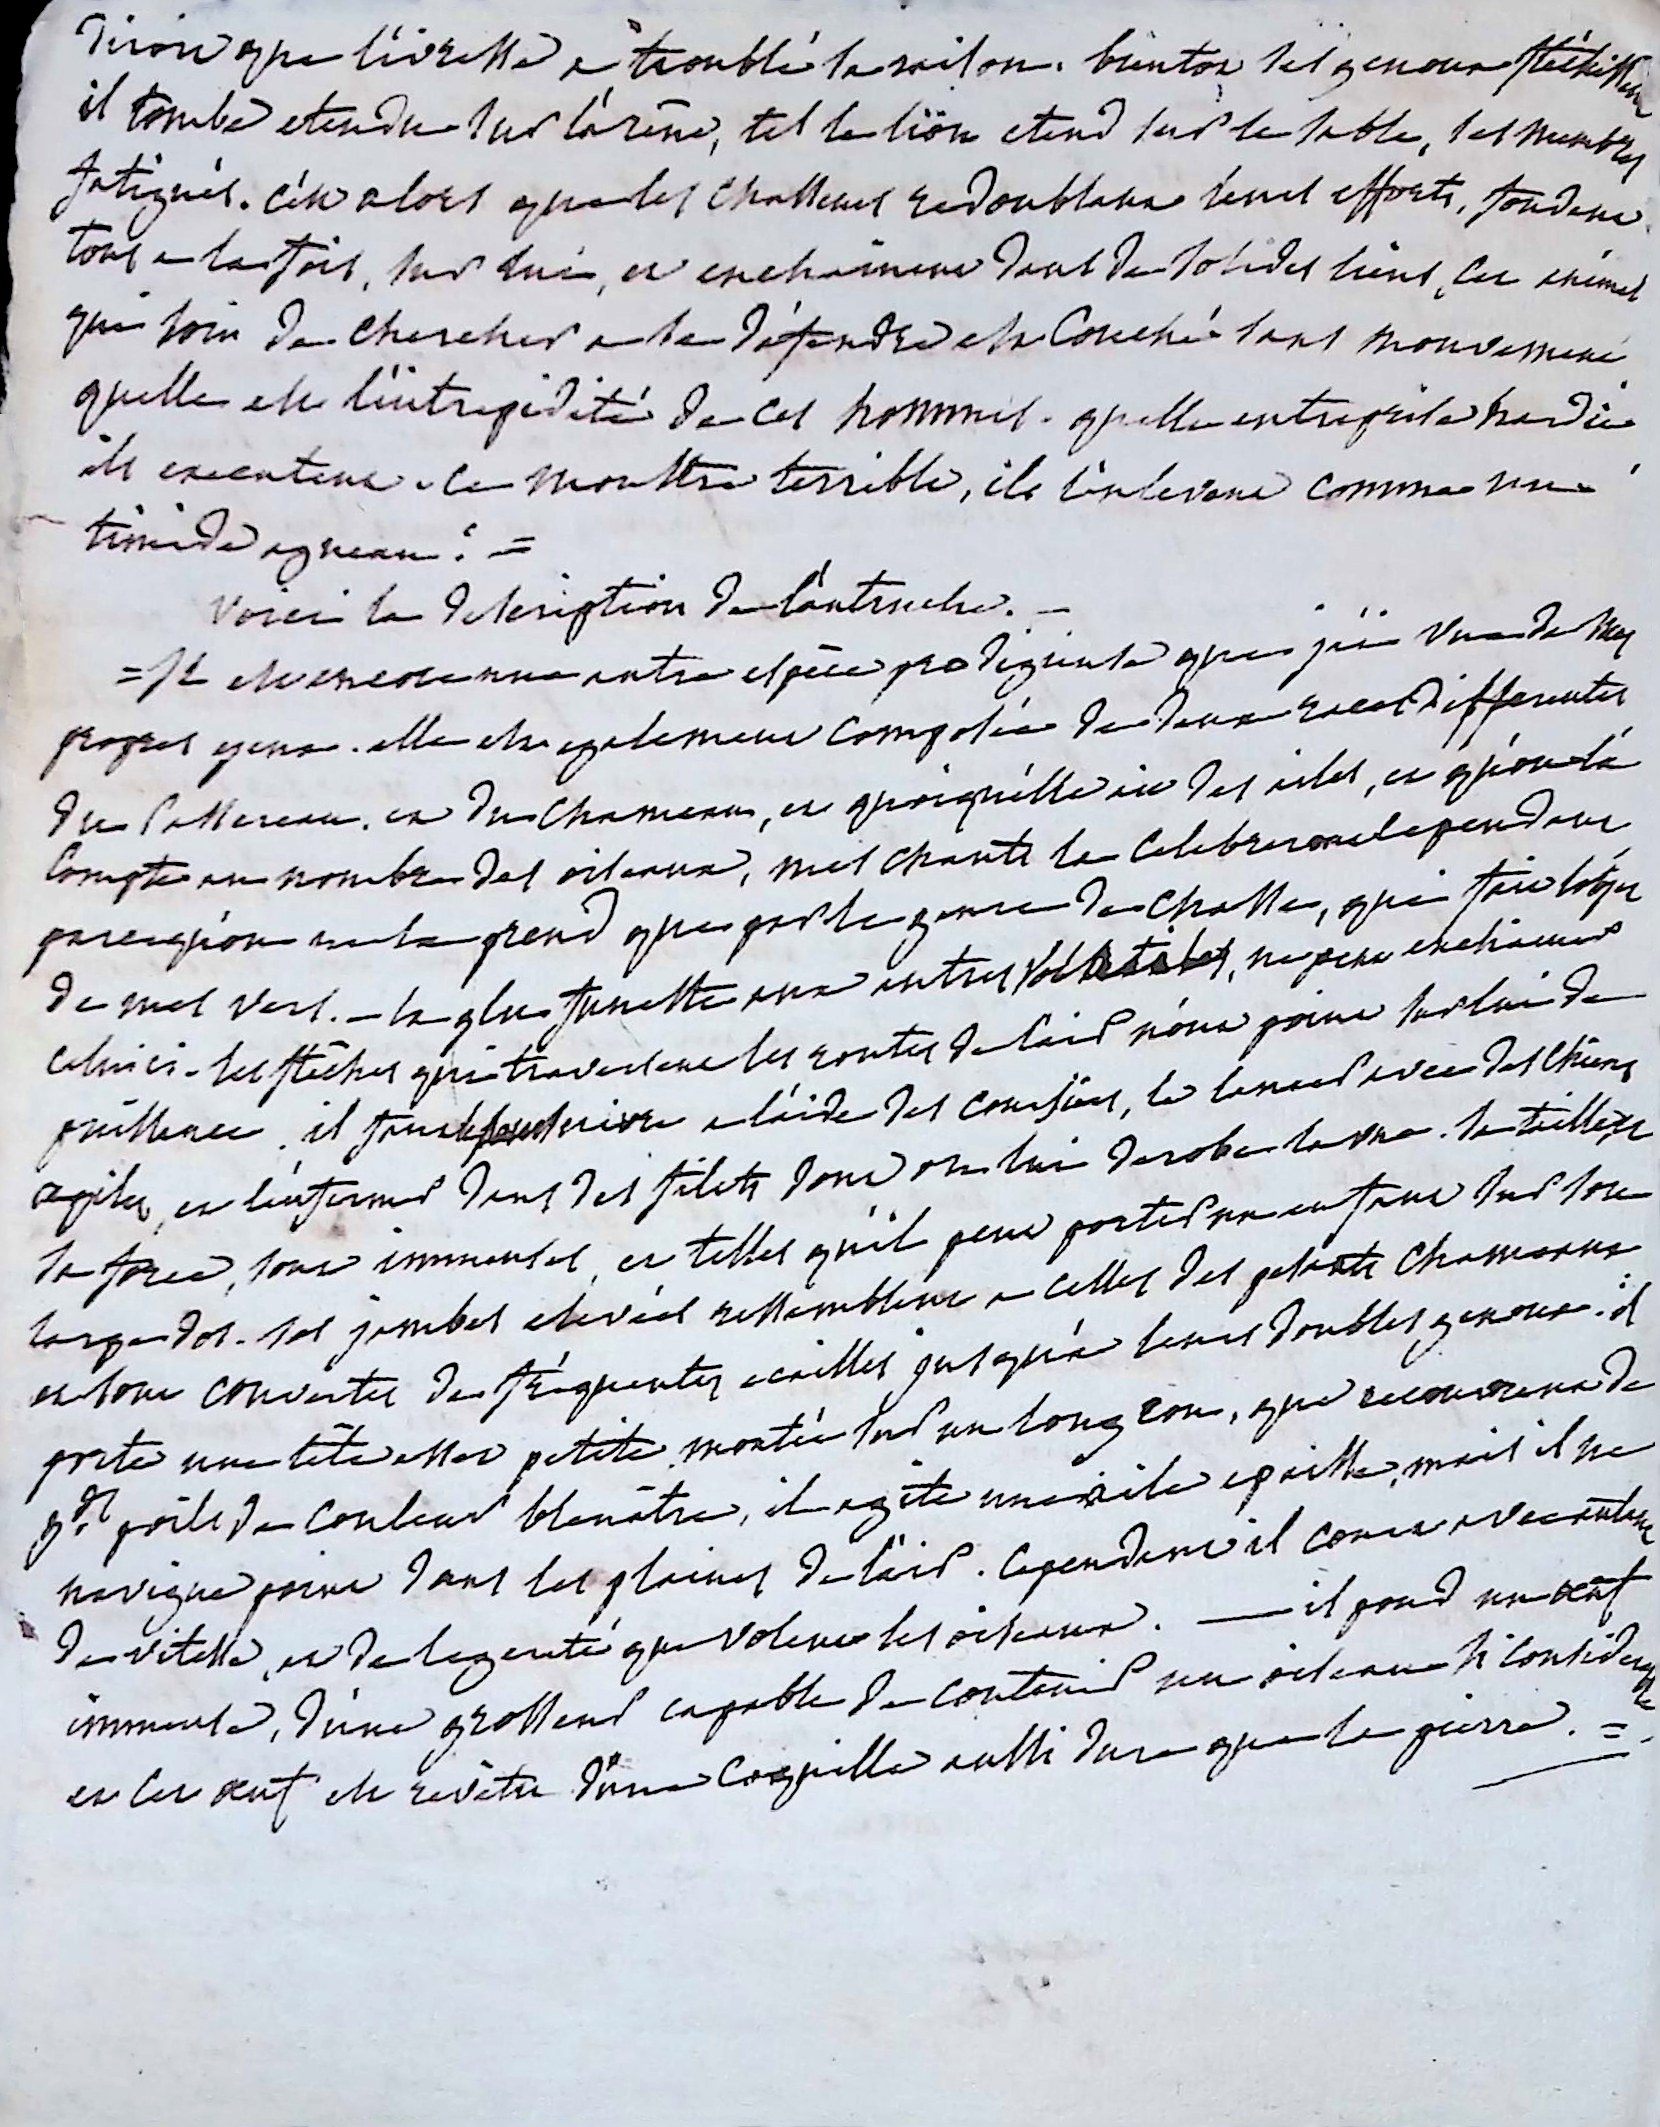 diroit que l'ivresse a troublé sa raison. bientot ses genoux fléchissent
il tombe etendu sur l'arène, tel le lïon etend sur le sable, ses membres
fatigués. c'est alors que les chasseurs redoublant leurs efforts, fondent
tous a la fois, sur lui, et enchainent dans de solides liens, cet animal
qui loin de chercher a se défendre est couché sans mouvement
quelle est l'intrepidité de ces hommes. quelle entreprise hardie
ils executent. ce monstre terrible, ils l'enlevent comme un
timide agneau! =
voici la description de l'autruche. _
= il est encore une autre espèce prodigieuse que j'ai vue de mes
propres yeux. elle est egalement composée de deux races differentes
du passereau. et du chameau, et quoiqu'elle ait des ailes, et qu'on la
compte au nombre des oiseaux, mes chants la celebreront cependant
parcequ'on ne la prend que par le genre de chasse, qui fait l'objet
de mes vers. _ la glu funeste aux autres volatiles, ne peut enchainer
celui ci. les flèches qui traversent les routes de l'air n'ont point sur lui de
puissance. il faut le poursuivre a l'aide des coursiers, le lancer avec des chiens
agiles, et l'enfermer dans des filets dont on lui derobe la vue. sa taille, et
sa force, sont immenses, et telles qu'il peut porter un enfant sur son
large dos. ses jambes elevées ressemblent a celles des pesants chameaux
et sont couvertes de fréquentes ecailles jusqu'a leurs doubles genoux. il
porte une tête assez petite, montée sur un long cou, que recouvrent de
gds. poils de couleur bleuâtre, il agite une aile epaisse, mais il ne
navigue point dans les plaines de l'air. cependant il court avec autant
de vitesse, et de legereté que volent les oiseaux. — il pond un oeuf
immense, d'une grosseur capable de contenir un oiseau si considerable
et cet oeuf est revêtu d'une coquille aussi dure que la pierre. =